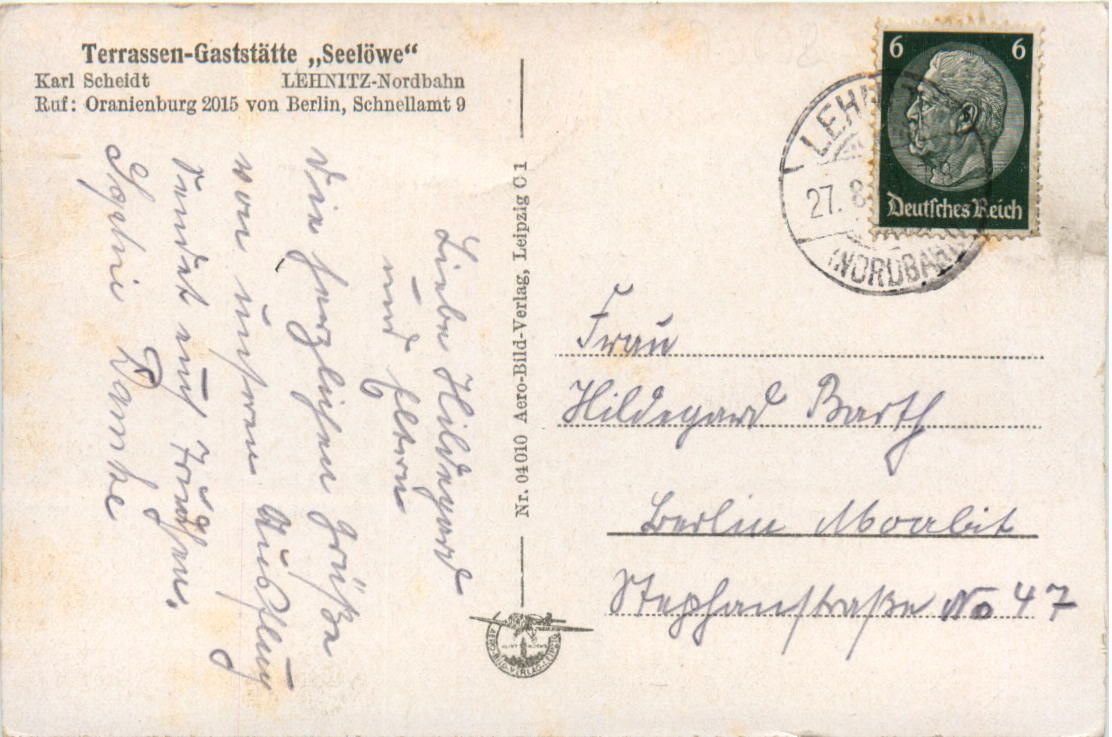 Terrassen-Gaststätte „Seelöwe“
Karl Scheidt LEHNITZ-Nordbahn
Ruf: Oranienburg 2015 von Berlin, Schnellamt 9
Liebe Hildegard
und Eltern
Die herzlichen Grüße
von unseren Ausflug
sendet aus
Sophie
Nr. 04010 Aero-Bild-Verlag, Leipzig C 1
AERO-BILD-VERLAG-LEIPZIG
6 6
Deutsches Reich
LEHNITZ
27. 8.
(NORDBAHN)
Frau
Hildegard Barth
Berlin Moabit
Stephanstraße No 47